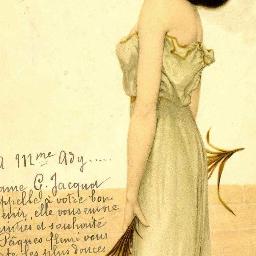 a Mme Ady.....
ame G. Jacquot
appelle à votre bon
enir, elle vous envoie
mitiés et souhaite
Jâques fleuri vous
te ses plus douces